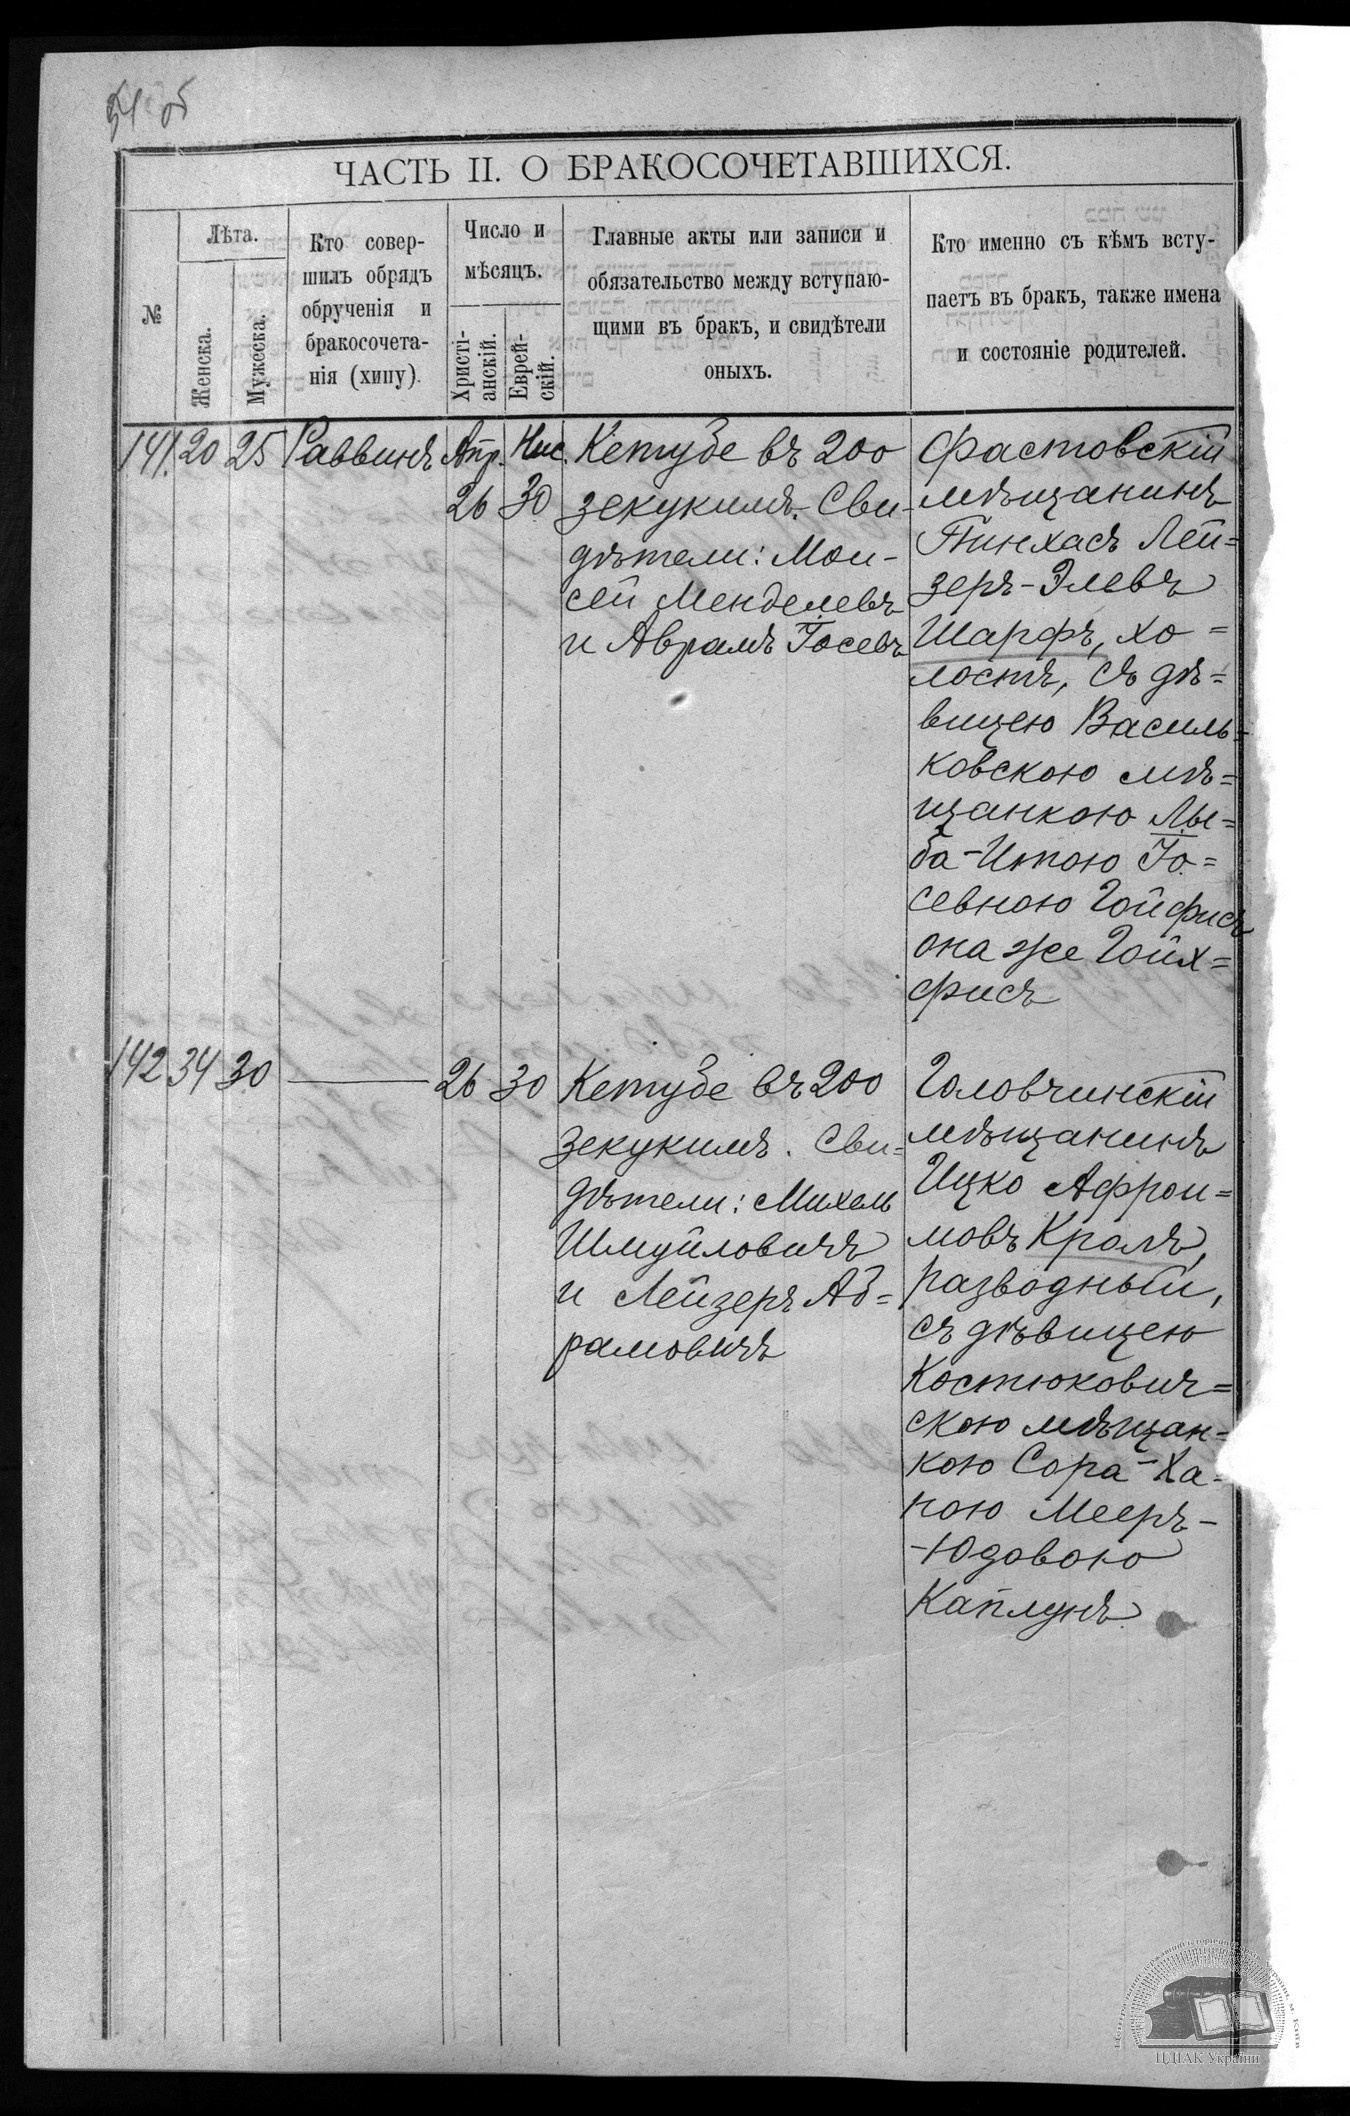 54 об
ЧАСТЬ II. О БРАКОСОЧЕТАВШИХСЯ.
№
Лѣта.
Женска.
Мужеска.
Кто совер-
шилъ обрядъ
обрученія и
бракосочета-
нія (хипу).
Число и
мѣсяцъ.
Христі-
анскій.
Еврей-
скій.
Главные акты или записи и
обязательство между вступаю-
щими въ бракъ, и свидѣтели
оныхъ.
Кто именно съ кѣмъ всту-
паетъ въ бракъ, также имена
и состояніе родителей.
141. 20 25 Раввинъ Апр. Нис.
26 30
Кетубе въ 200
зекукимъ. Сви-
дѣтели: Мои-
сей Менделевъ
и Аврамъ Іосевъ
Фастовскій
мѣщанинъ
Пинхасъ Лей=
зеръ-Элевъ
Шарфъ, хо=
лостъ, съ дѣ=
вицею Василь=
ковскою мѣ=
щанкою Лы=
ба-Итою Іо=
севною Гойфисъ
она же Гойх=
фисъ
142 34 30 — 26 30
Кетубе въ 200
зекукимъ. Сви=
дѣтели: Михель
Шмуйловичъ
и Лейзеръ Аб=
рамовичъ
Головчинскій
мѣщанинъ
Ицко Афрои=
мовъ Кролъ,
разводный,
съ дѣвицею
Костюкович=
скою мѣщан=
кою Сора-Ха=
ною Мееръ-
-Юдовою
Каплунъ
ЦДІАК України